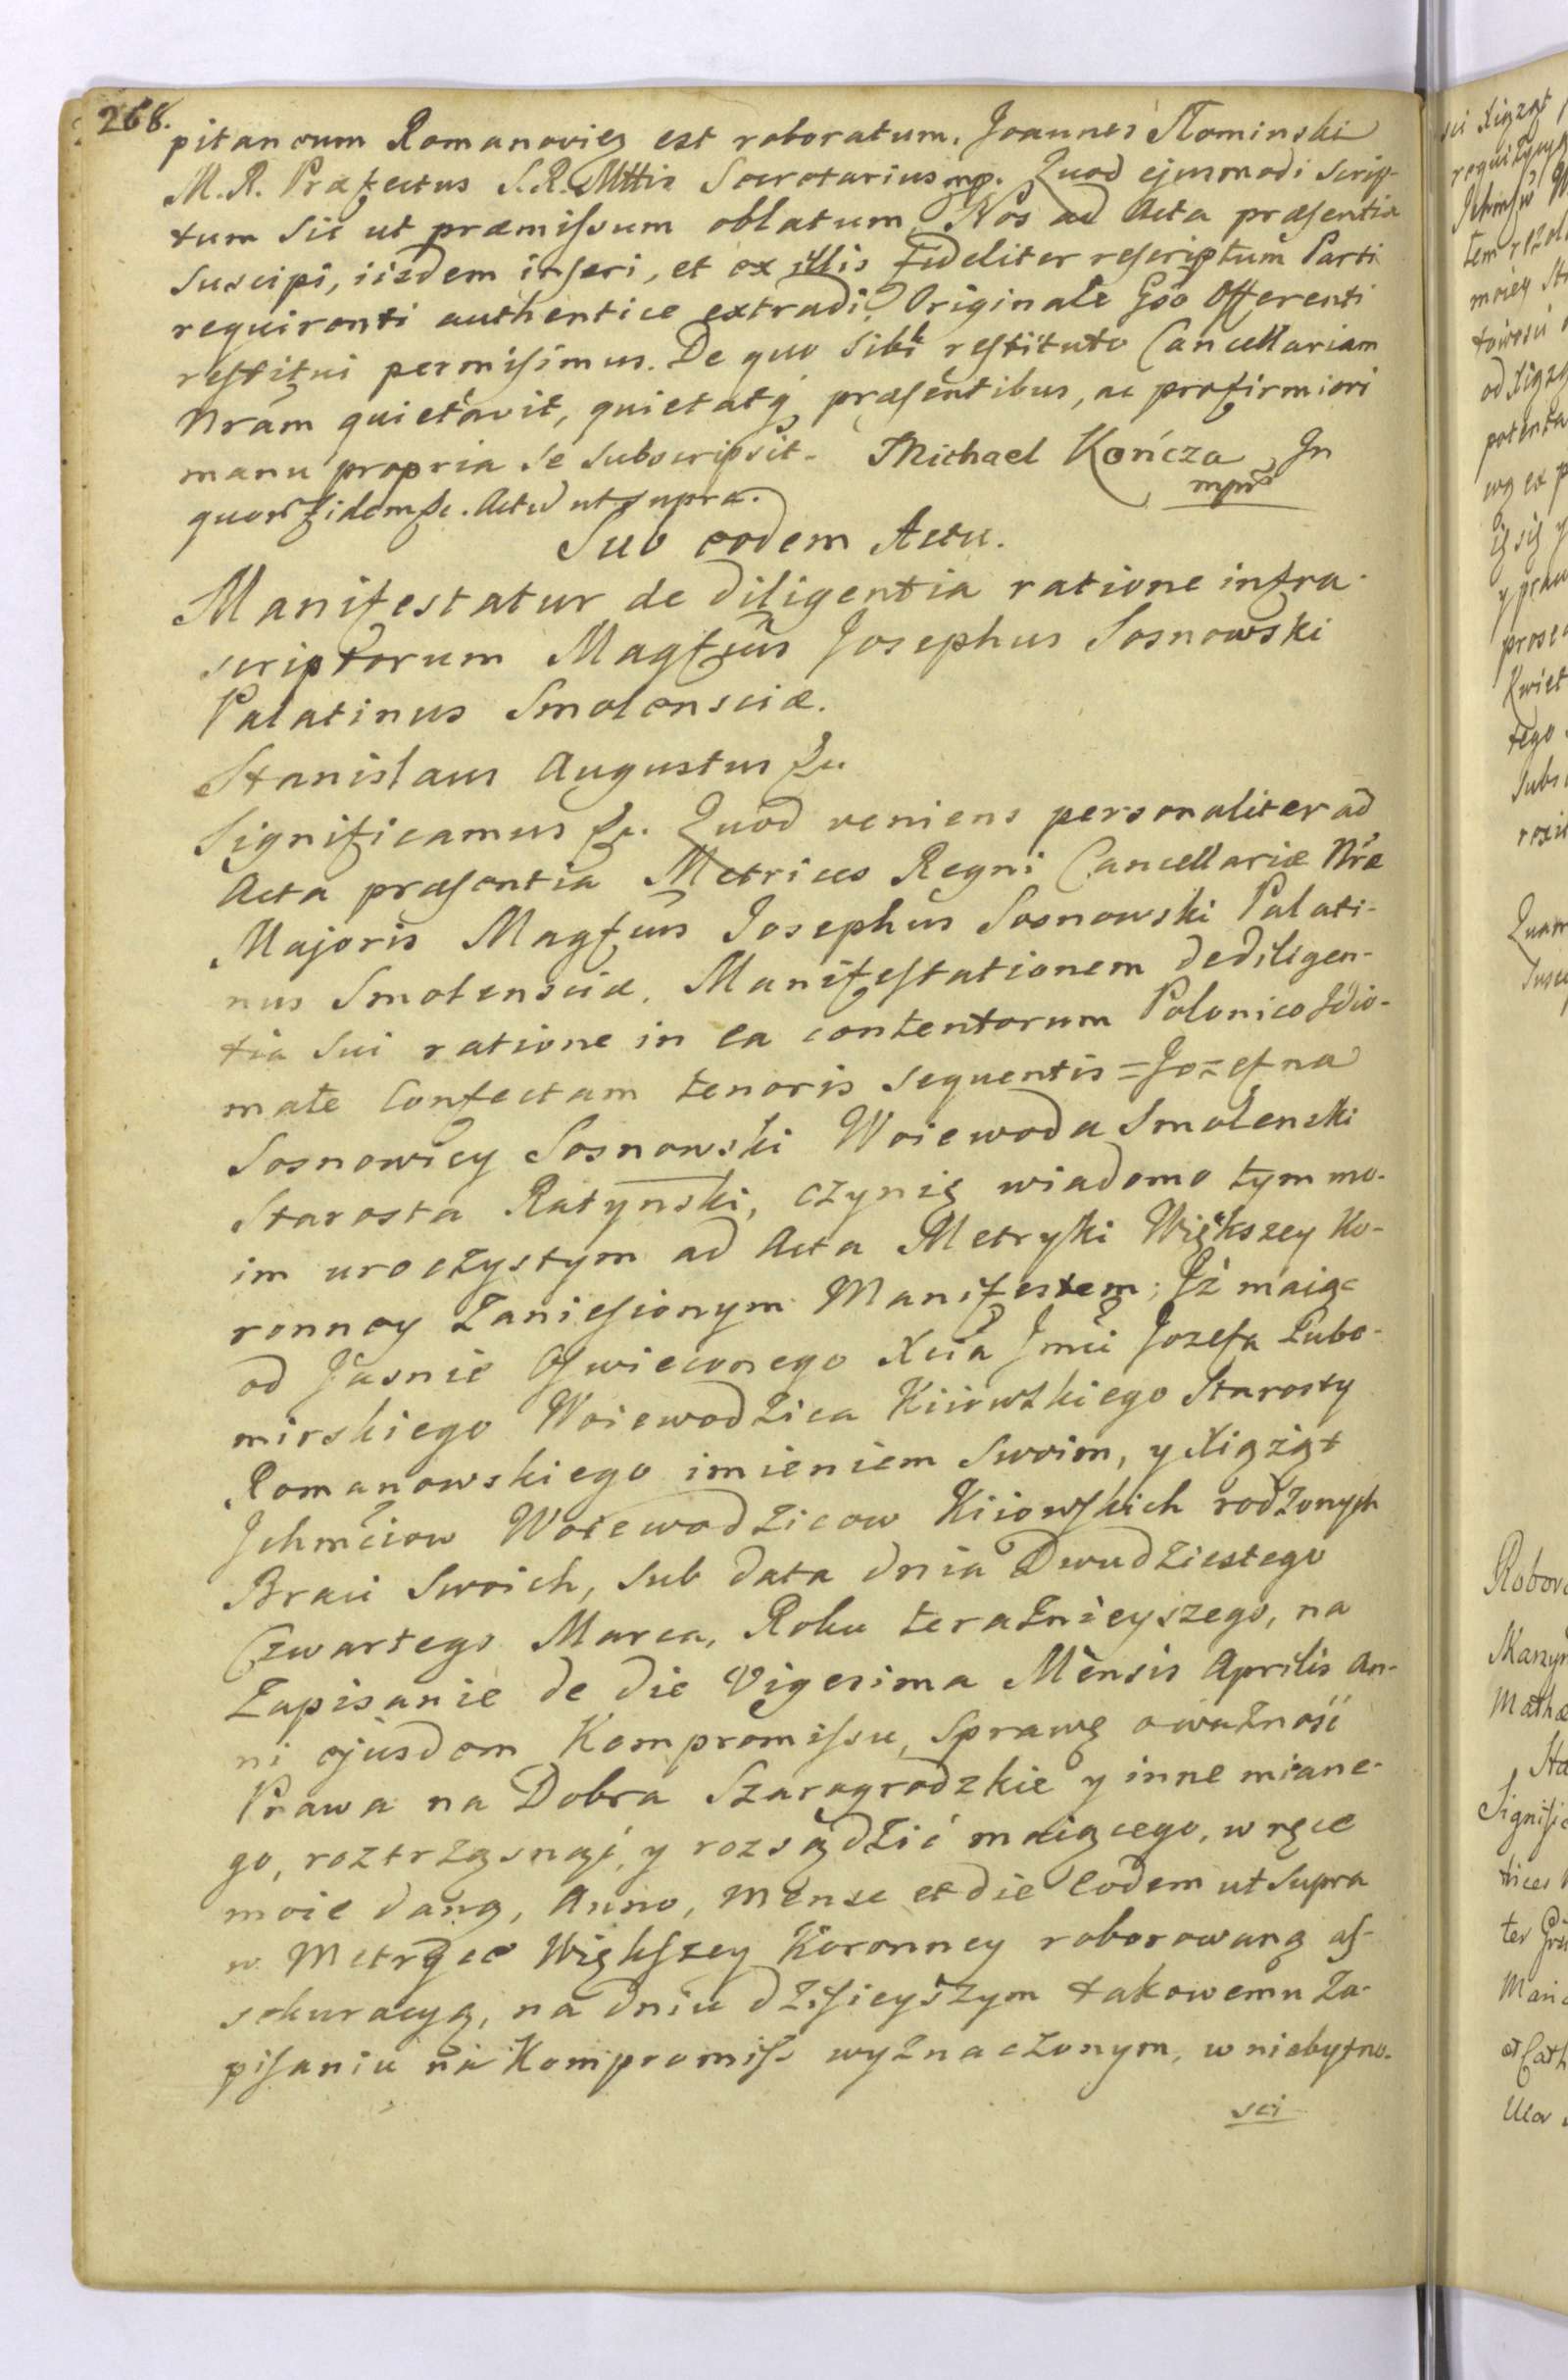 268.
pitaneum Romanoviez est roboratum. Joannes Słominski
M. R. Præfectus S. R. Mttis Secretarius mp. Quod ejusmodi scrip-
tum sic ut præmissum oblatum, Nos ad Acta præsentia
suscipi, iisdem inseri, et ex illis fideliter rescriptum Parti
requirenti authentice extradi. Originale Gso Offerenti
restitui permisimus. De quo sibi restituto Cancellariam
Nram quietavit, quietatq præsentibus, ac pro firmiori
manu propria se subscripsit. Michael Kończa In
mpria
quor fidem &c. Actu ut supra.
Sub eodem Actu.
Manifestatur de diligentia ratione infra-
scriptorum Magfcus Josephus Sosnowski
Palatinus Smolensciæ.
Stanislaus Augustus &c.
Significamus &c. Quod veniens personaliter ad
Acta præsentia Metrices Regni Cancellariæ Nræ
Majoris Magfcus Josephus Sosnowski Palati-
nus Smolensciæ, Manifestationem de diligen-
tia sui ratione in ea contentorum Polonico Idio-
mate confectam tenoris sequentis = Jozef na
Sosnowicy Sosnowski Woiewoda Smolenski
Starosta Ratynski, czynię wiadomo tym mo-
im uroczystym ad Acta Metryki Większey Ko-
ronney zaniesionym Manifestem; Iż maiąc
od Jasnie Oswieconego Xcia Jmci Jozefa Lubo-
mirskiego Woiewodzica Kiiowskiego Starosty
Romanowskiego imieniem swoim, y Xiążąt
Ichmciow Woiewodzicow Kiiowskich rodzonych
Braci swoich, sub data dnia Dwudziestego
Czwartego Marca, Roku teraźnieyszego, na
Zapisanie de die Vigesima Mensis Aprilis An-
ni ejusdem Kompromissu, sprawę o ważność
Prawa na Dobra Szarogrodzkie y inne miane-
go, roztrząsnąć, y rozsądzić maiącego, w ręce
moie daną, Anno, Mense et die eodem ut supra
w Metryce Większey Koronney roborowaną as-
sekuracyą, na dniu dzisieyszym takowemu Za-
pisaniu na Kompromiss wyznaczonym, w niebytno-
sci